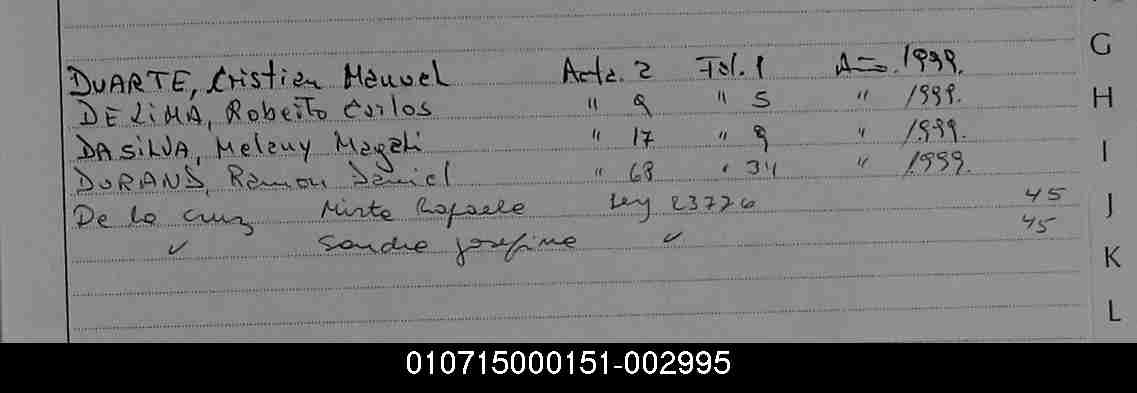 G
DUARTE, Cristian Manuel Acta. 2 Fol. 1 Año. 1999.
DE LIMA, Roberto Carlos " 9 " 5 " 1999. H
DA SILVA, Melany Magali " 17 " 9 " 1999.
I
DURAND, Ramon Daniel " 68 " 34 " 1999.
De la Cruz Mirta Rafaela Ley 23776 45 J
✓ Sandra Josefina ✓ 45
K
L
010715000151-002995